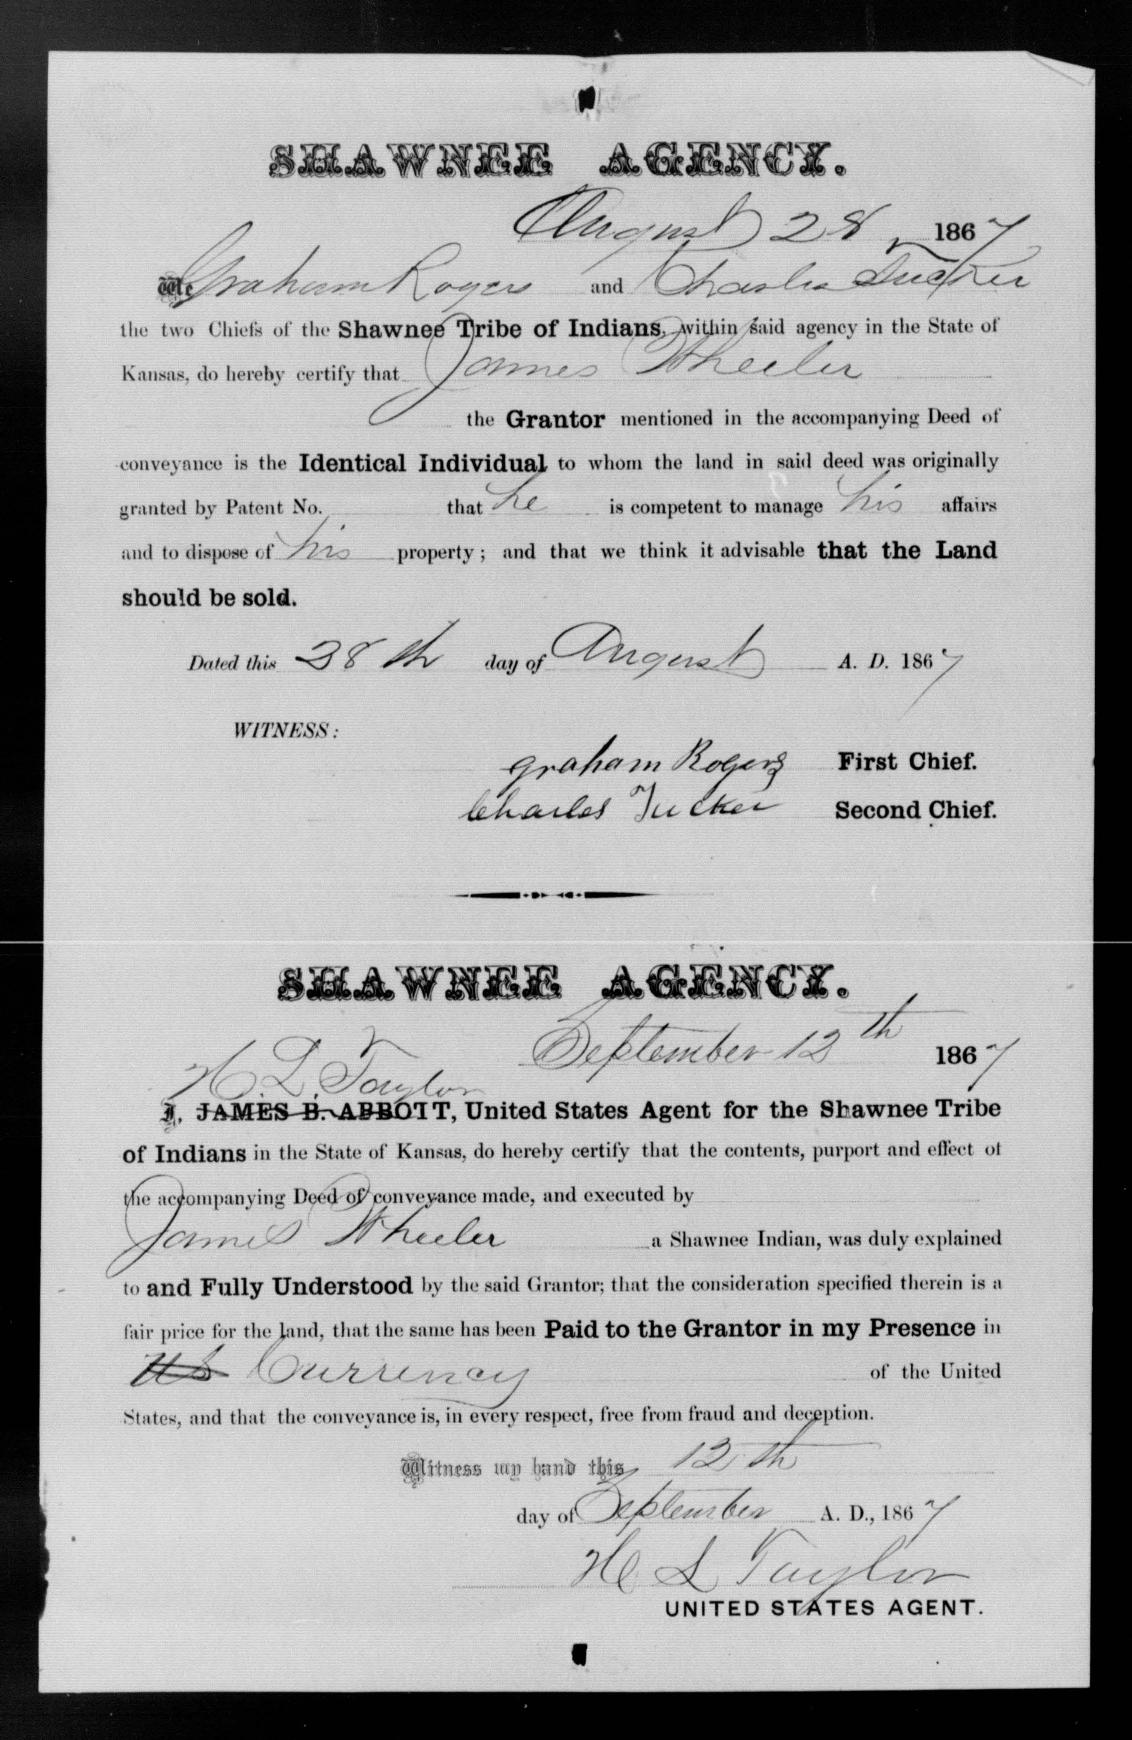 SHAWNEE AGENCY.
August 28, 1867
We Graham Rogers and Charles Tucker
the two Chiefs of the Shawnee Tribe of Indians, within said agency in the State of
Kansas, do hereby certify that James Wheeler
the Grantor mentioned in the accompanying Deed of
conveyance is the Identical Individual to whom the land in said deed was originally
granted by Patent No. that he is competent to manage his affairs
and to dispose of his property; and that we think it advisable that the Land
should be sold.
Dated this 28th day of August A. D. 1867
WITNESS:
Graham Rogers First Chief.
Charles Tucker Second Chief.
SHAWNEE AGENCY.
September 12th 1867
H. L. Taylor
I, JAMES B. ABBOTT, United States Agent for the Shawnee Tribe
of Indians in the State of Kansas, do hereby certify that the contents, purport and effect of
the accompanying Deed of conveyance made, and executed by
James Wheeler a Shawnee Indian, was duly explained
to and Fully Understood by the said Grantor; that the consideration specified therein is a
fair price for the land, that the same has been Paid to the Grantor in my Presence in
US Currency of the United
States, and that the conveyance is, in every respect, free from fraud and deception.
Witness my hand this 12th
day of September A. D., 1867
H L Taylor
UNITED STATES AGENT.